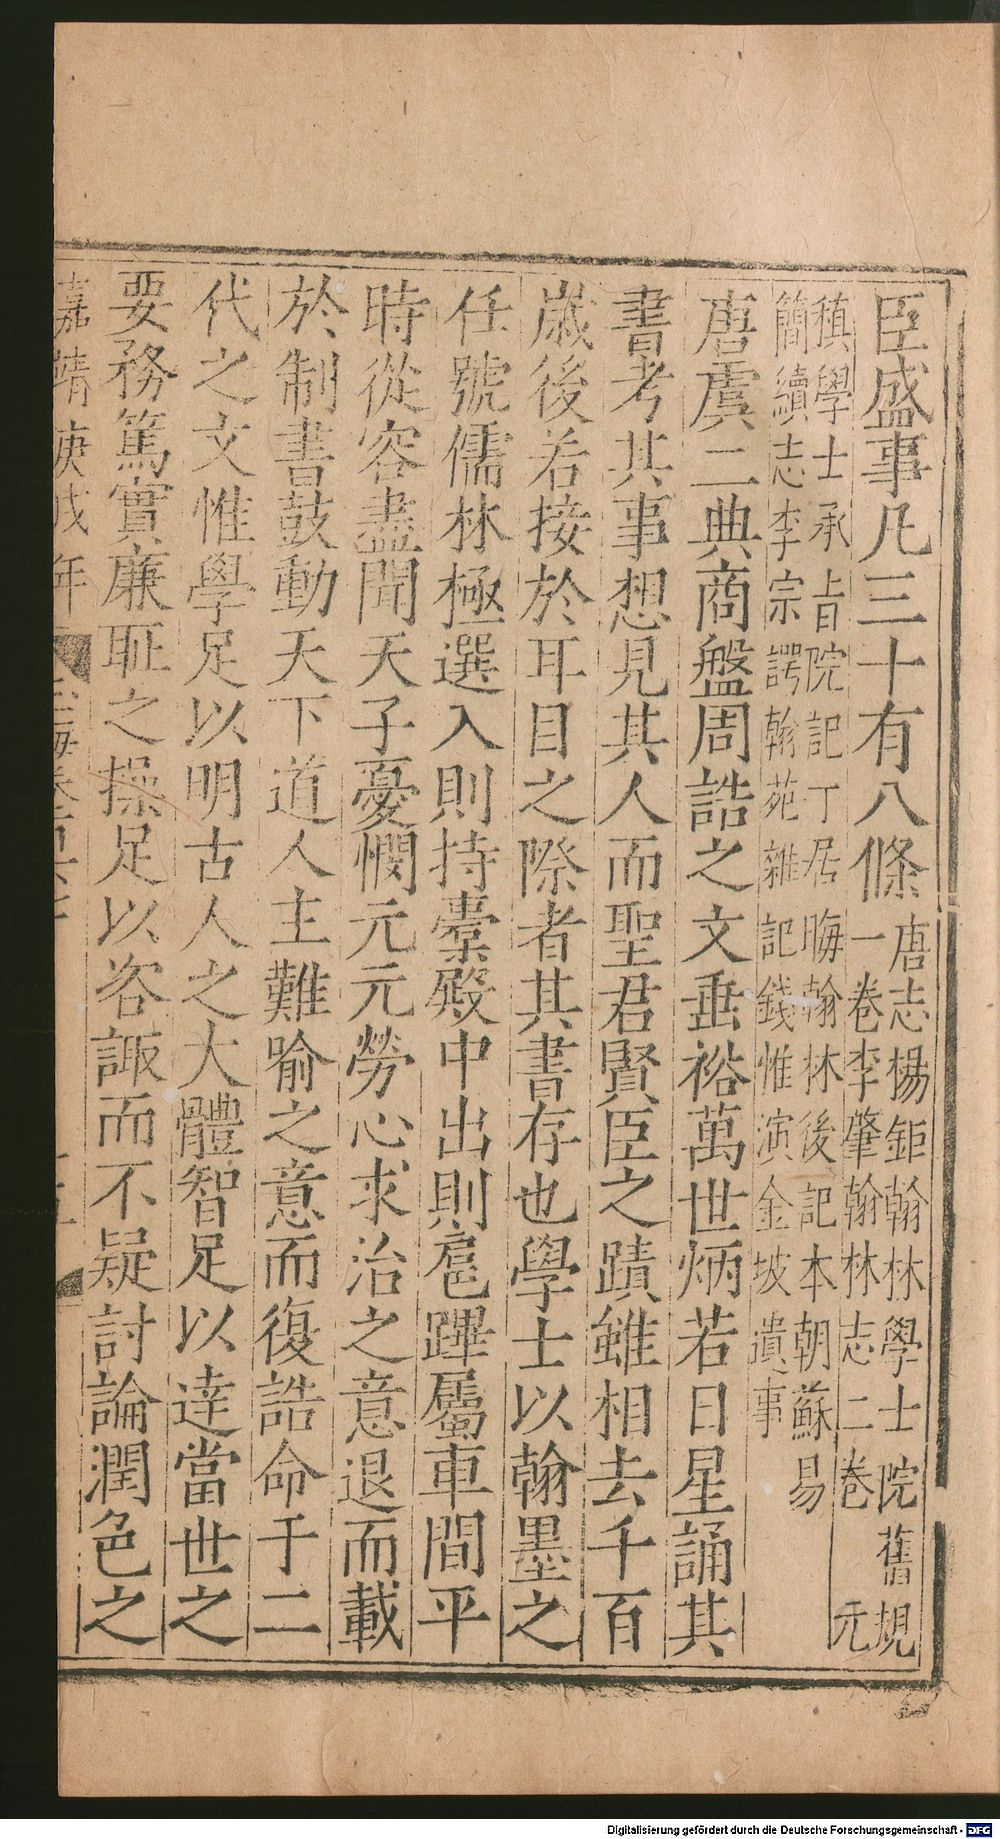 臣盛事凡三十有八條唐志楊鉅翰林學士院舊規
一卷李肇翰林志二卷元
稹學士承旨院記丁居晦翰林後記本朝蘇易
簡續志李宗諤翰苑雜記錢惟演金坡遺事
唐虞二典商盤周誥之文垂裕萬世炳若日星誦其
書考其事想見其人而聖君賢臣之蹟雖相去千百
歲後若接於耳目之際者其書存也學士以翰墨之
任號儒林極選入則持橐殿中出則扈蹕屬車間平
時從容盡聞天子憂憫元元勞心求治之意退而載
於制書鼓動天下道人主難喻之意而復誥命于二
代之文惟學足以明古人之大體智足以達當世之
要務篤實廉恥之操足以咨諏而不疑討論潤色之
嘉靖庚戌年
Digitalisierung gefördert durch die Deutsche Forschungsgemeinschaft - DFG